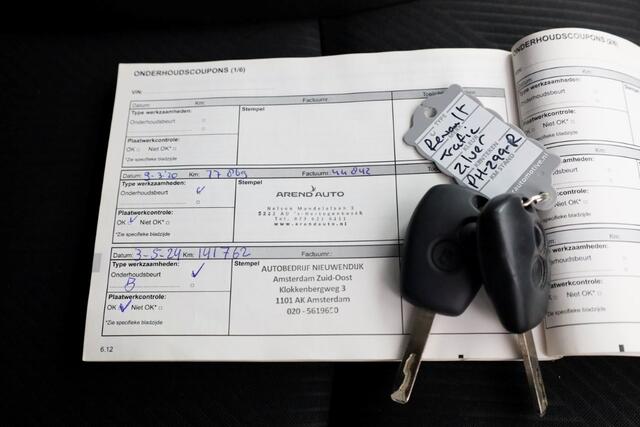 ONDERHOUDSCOUPONS (1/6)
VIN:
Datum: Km: Factuurnr.
Type werkzaamheden: Stempel
Onderhoudsbeurt
Plaatwerkcontrole:
OK Niet OK*
*Zie specifieke bladzijde
Datum: 9-3-'20 Km: 77 869 Factuurnr. 44842
Type werkzaamheden: Stempel
Onderhoudsbeurt ✓
AREND AUTO
Nelson Mandelalaan 3
www.arendauto.nl
Plaatwerkcontrole:
OK ✓ Niet OK*
*Zie specifieke bladzijde
Datum: 3-5-24 Km: 141762 Factuurnr.:
Type werkzaamheden: Stempel
Onderhoudsbeurt ✓
B
AUTOBEDRIJF NIEUWENDIJK
Amsterdam Zuid-Oost
Klokkenbergweg 3
1101 AK Amsterdam
020 - 5619650
Plaatwerkcontrole:
OK ✓ Niet OK*
*Zie specifieke bladzijde
6.12
ONDERHOUDSCOUPONS (2/6)
VIN:
Datum:
Type werkzaamheden:
Onderhoudsbeurt
Plaatwerkcontrole:
OK Niet OK*
*Zie specifieke bladzijde
Type werkzaamheden:
Onderhoudsbeurt
Plaatwerkcontrole:
*Zie specifieke bladzijde
TYPE
Renault
Trafic
Zilver
KM STAND
automotive.nl